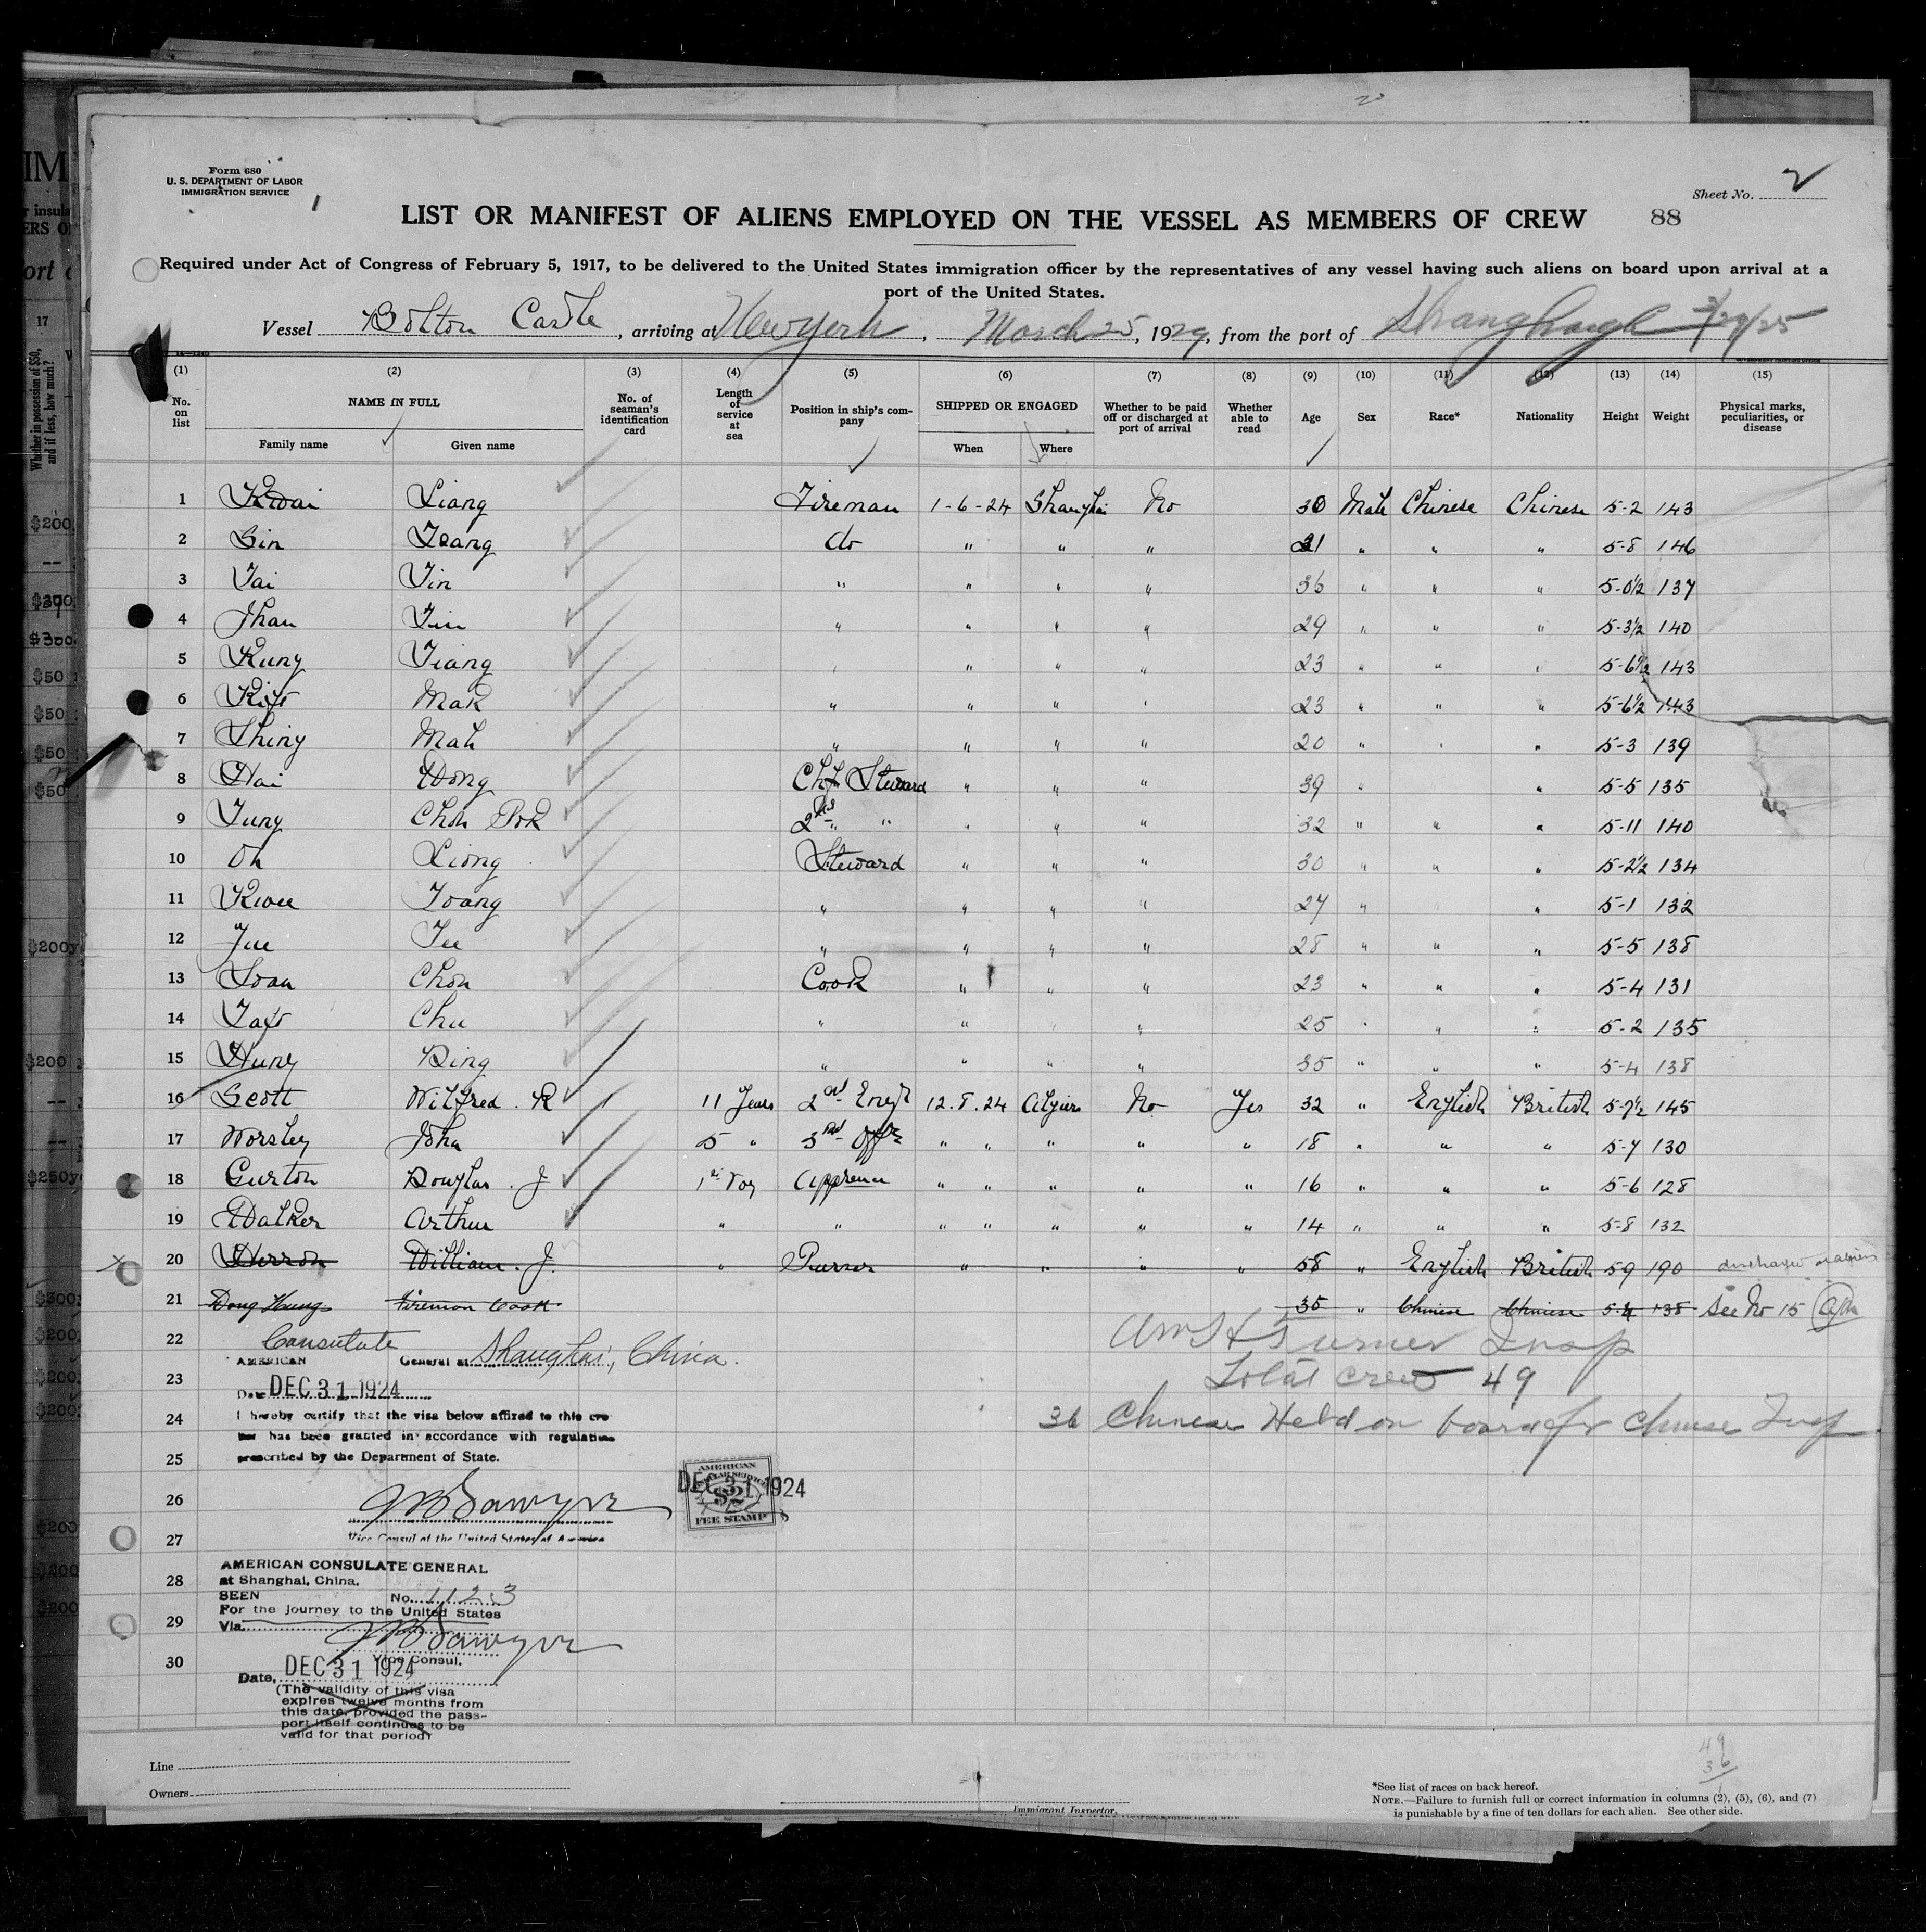 Form 680
U. S. DEPARTMENT OF LABOR
IMMIGRATION SERVICE
Sheet No. 2
LIST OR MANIFEST OF ALIENS EMPLOYED ON THE VESSEL AS MEMBERS OF CREW 88
Required under Act of Congress of February 5, 1917, to be delivered to the United States immigration officer by the representatives of any vessel having such aliens on board upon arrival at a
port of the United States.
Vessel Bolton Castle, arriving at New York, March 25, 1929, from the port of
(1) (2) (3) (4) (5) (6) (7) (8) (9) (10) (11) (12) (13) (14) (15)
No. on list NAME IN FULL Family name Given name No. of seaman's identification card Length of service at sea Position in ship's company SHIPPED OR ENGAGED When Where Whether to be paid off or discharged at port of arrival Whether able to read Age Sex Race* Nationality Height Weight Physical marks, peculiarities, or disease
1 Kwai Liang Fireman 1-6-24 Shanghai No 30 Male Chinese Chinese 5-2 143
2 Sin Tsang do " " " 31 " " " 5-8 146
3 Tai Yin " " " " 36 " " " 5-0½ 137
4 " " " " 29 " " " 5-3½ 140
5 Kung " " " " 23 " " " 5-6½ 143
6 Mak " " " " 23 " " " 5-6½ 143
7 Mah " " " " 20 " " " 5-3 139
8 Hai Wong Chf Steward " " " 39 " " " 5-5 135
9 2nd " " " " 32 " " " 5-11 140
10 Oh Liong Steward " " " 30 " " " 5-2½ 134
11 " " " " 27 " " " 5-1 132
12 " " " " 28 " " " 5-5 138
13 Cook " " " 23 " " " 5-4 131
14 Chu " " " " 25 " " " 5-2 135
15 " " " " 35 " " " 5-4 138
16 Scott Wilfred . R 11 Years 2nd Eng'r 12.8.24 Algiers No Yes 32 " English British 5-7½ 145
17 Worsley John 5 " 3rd Offr " " " " " 18 " " " 5-7 130
18 Gurton Douglas . J 1st Voy Apprence " " " " " 16 " " " 5-6 128
19 Walker Arthur " " " " " " " 14 " " " 5-8 132
20 Herron William . J. " Purser " " " " 58 " English British 5 9 190 discharged
21 Dong Hung Fireman Cook 35 " Chinese Chinese 5-4 138 See No 15
22 Consulate
AMERICAN General at Shanghai, China.
Wm H Turner Insp
23 Date DEC 31 1924
Total Crew 49
24 I hereby certify that the visa below affixed to this crew
list has been granted in accordance with regulations
36 Chinese Held on board for Chinese Insp
25 prescribed by the Department of State.
26 J B Sawyer
AMERICAN CONSULAR SERVICE $2 FEE STAMP
DEC 31 1924
27 Vice Consul of the United States of America
AMERICAN CONSULATE GENERAL
28 at Shanghai, China.
SEEN No. 1123
For the journey to the United States
29 Via
J B Sawyer
Vice Consul.
30 Date, DEC 31 1924
(The validity of this visa
expires twelve months from
this date, provided the pass-
port itself continues to be
valid for that period)
49
36
Line
Owners
Immigrant Inspector.
*See list of races on back hereof.
NOTE.—Failure to furnish full or correct information in columns (2), (5), (6), and (7)
is punishable by a fine of ten dollars for each alien. See other side.